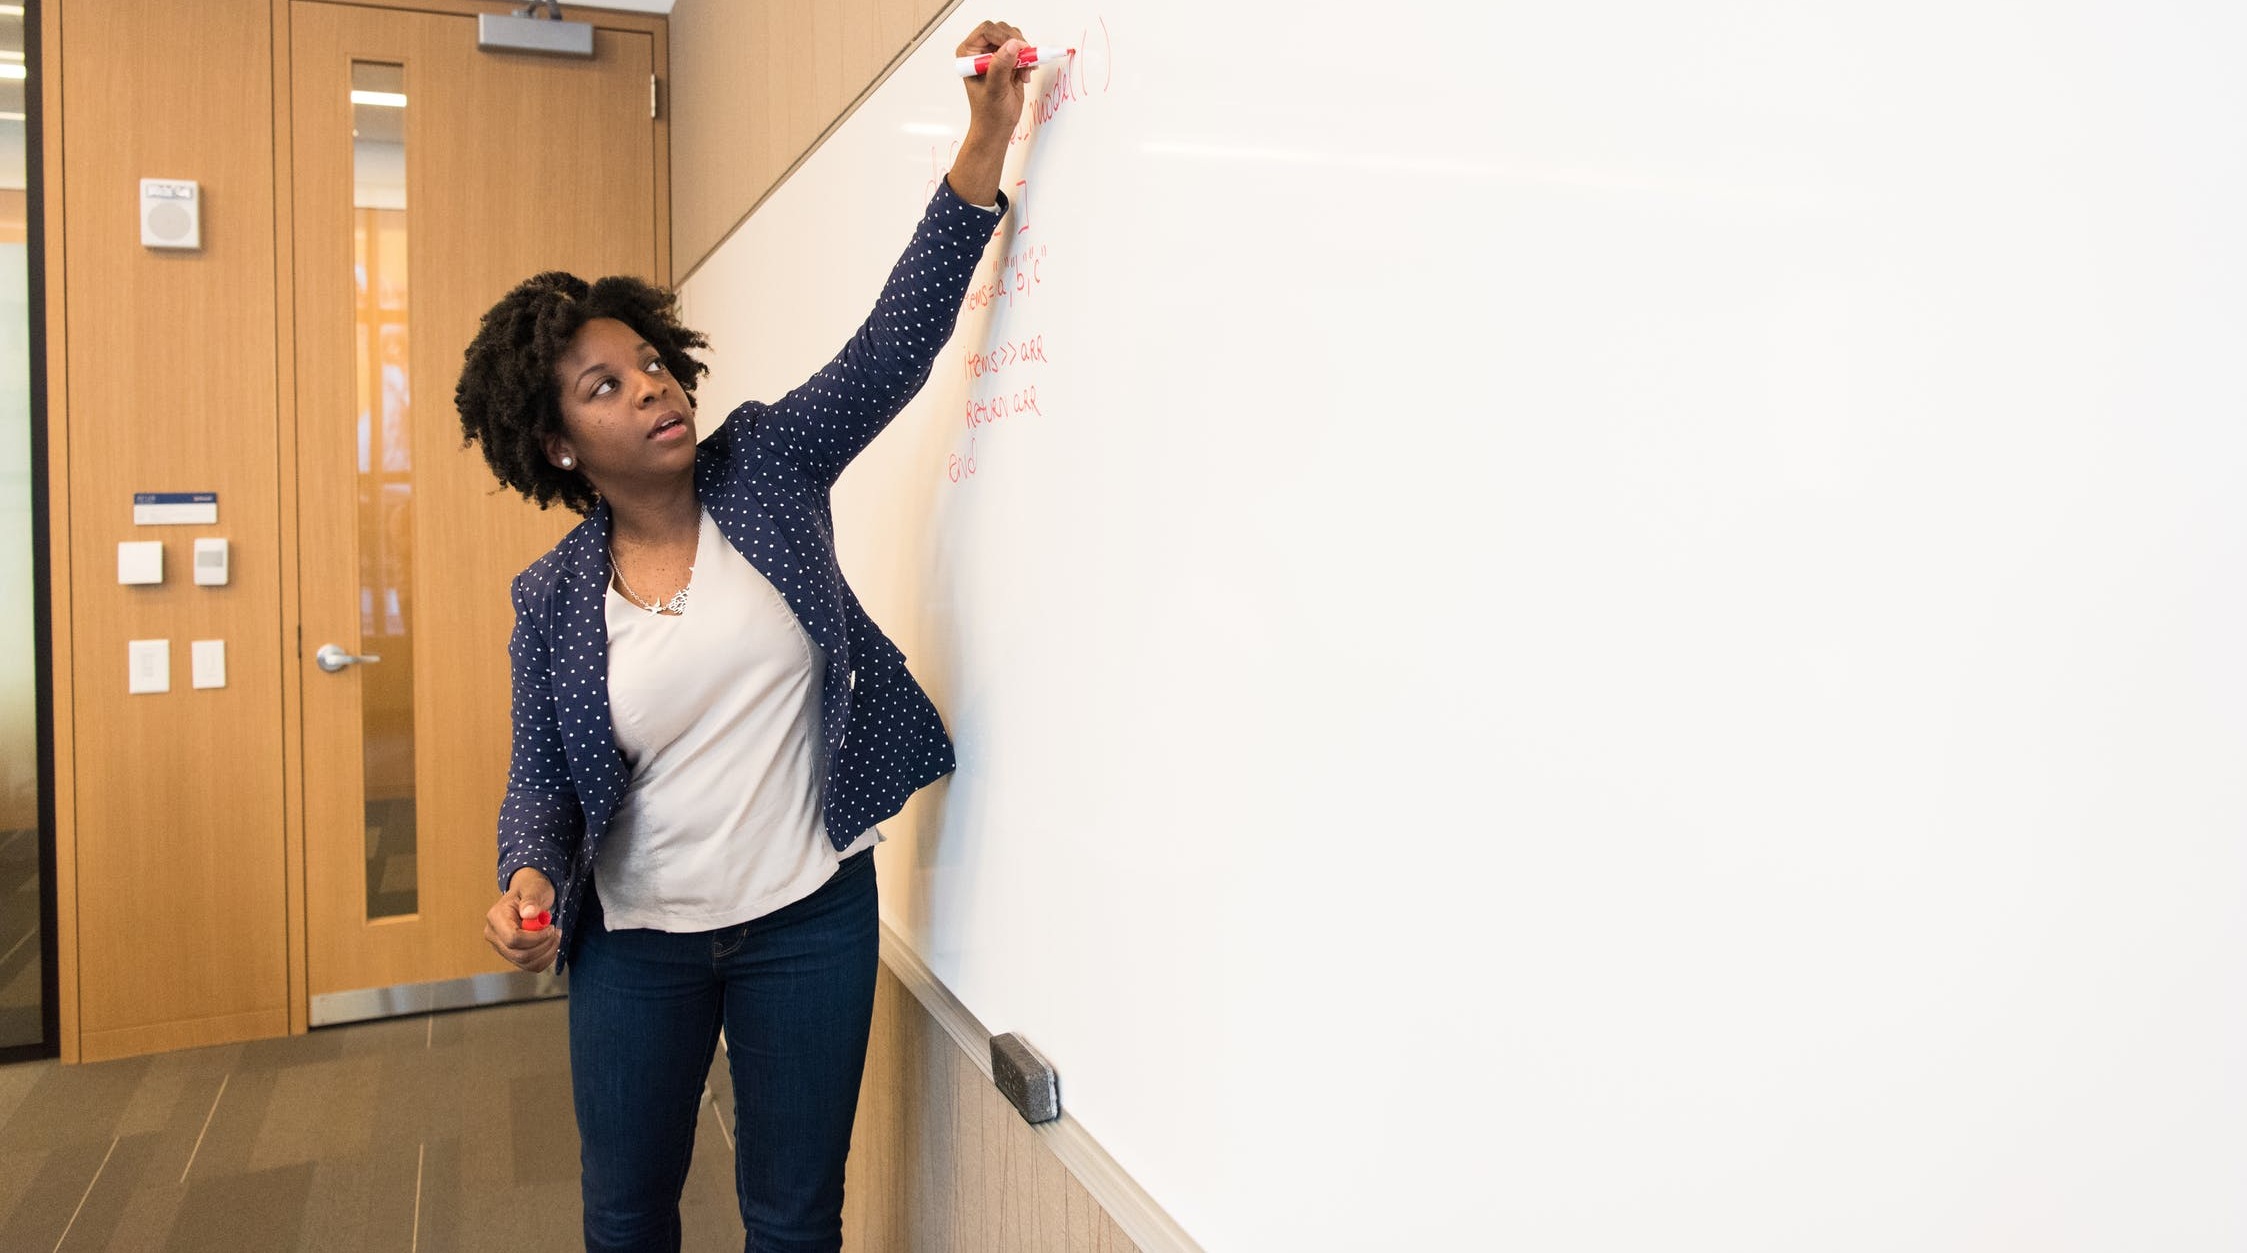 def model()
]
items="a","b","c"
items>>arr
Return arr
end